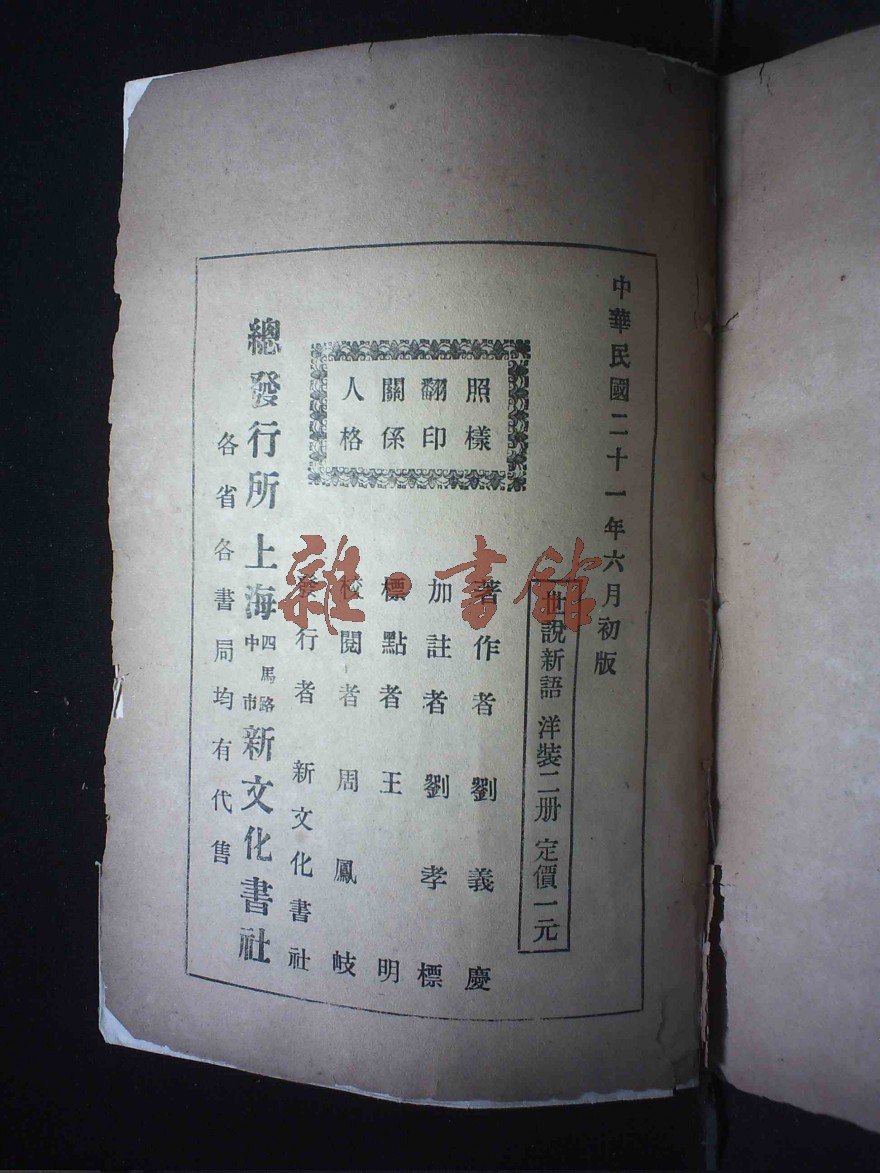 中華民國二十一年六月初版
世說新語 洋裝二册 定價一元
照樣
翻印
關係
人格
著作者 劉義慶
加註者 劉孝標
標點者 王明
校閱者 周鳳岐
發行者 新文化書社
總發行所 上海 四馬路中市 新文化書社
各省各書局均有代售
雜·書館